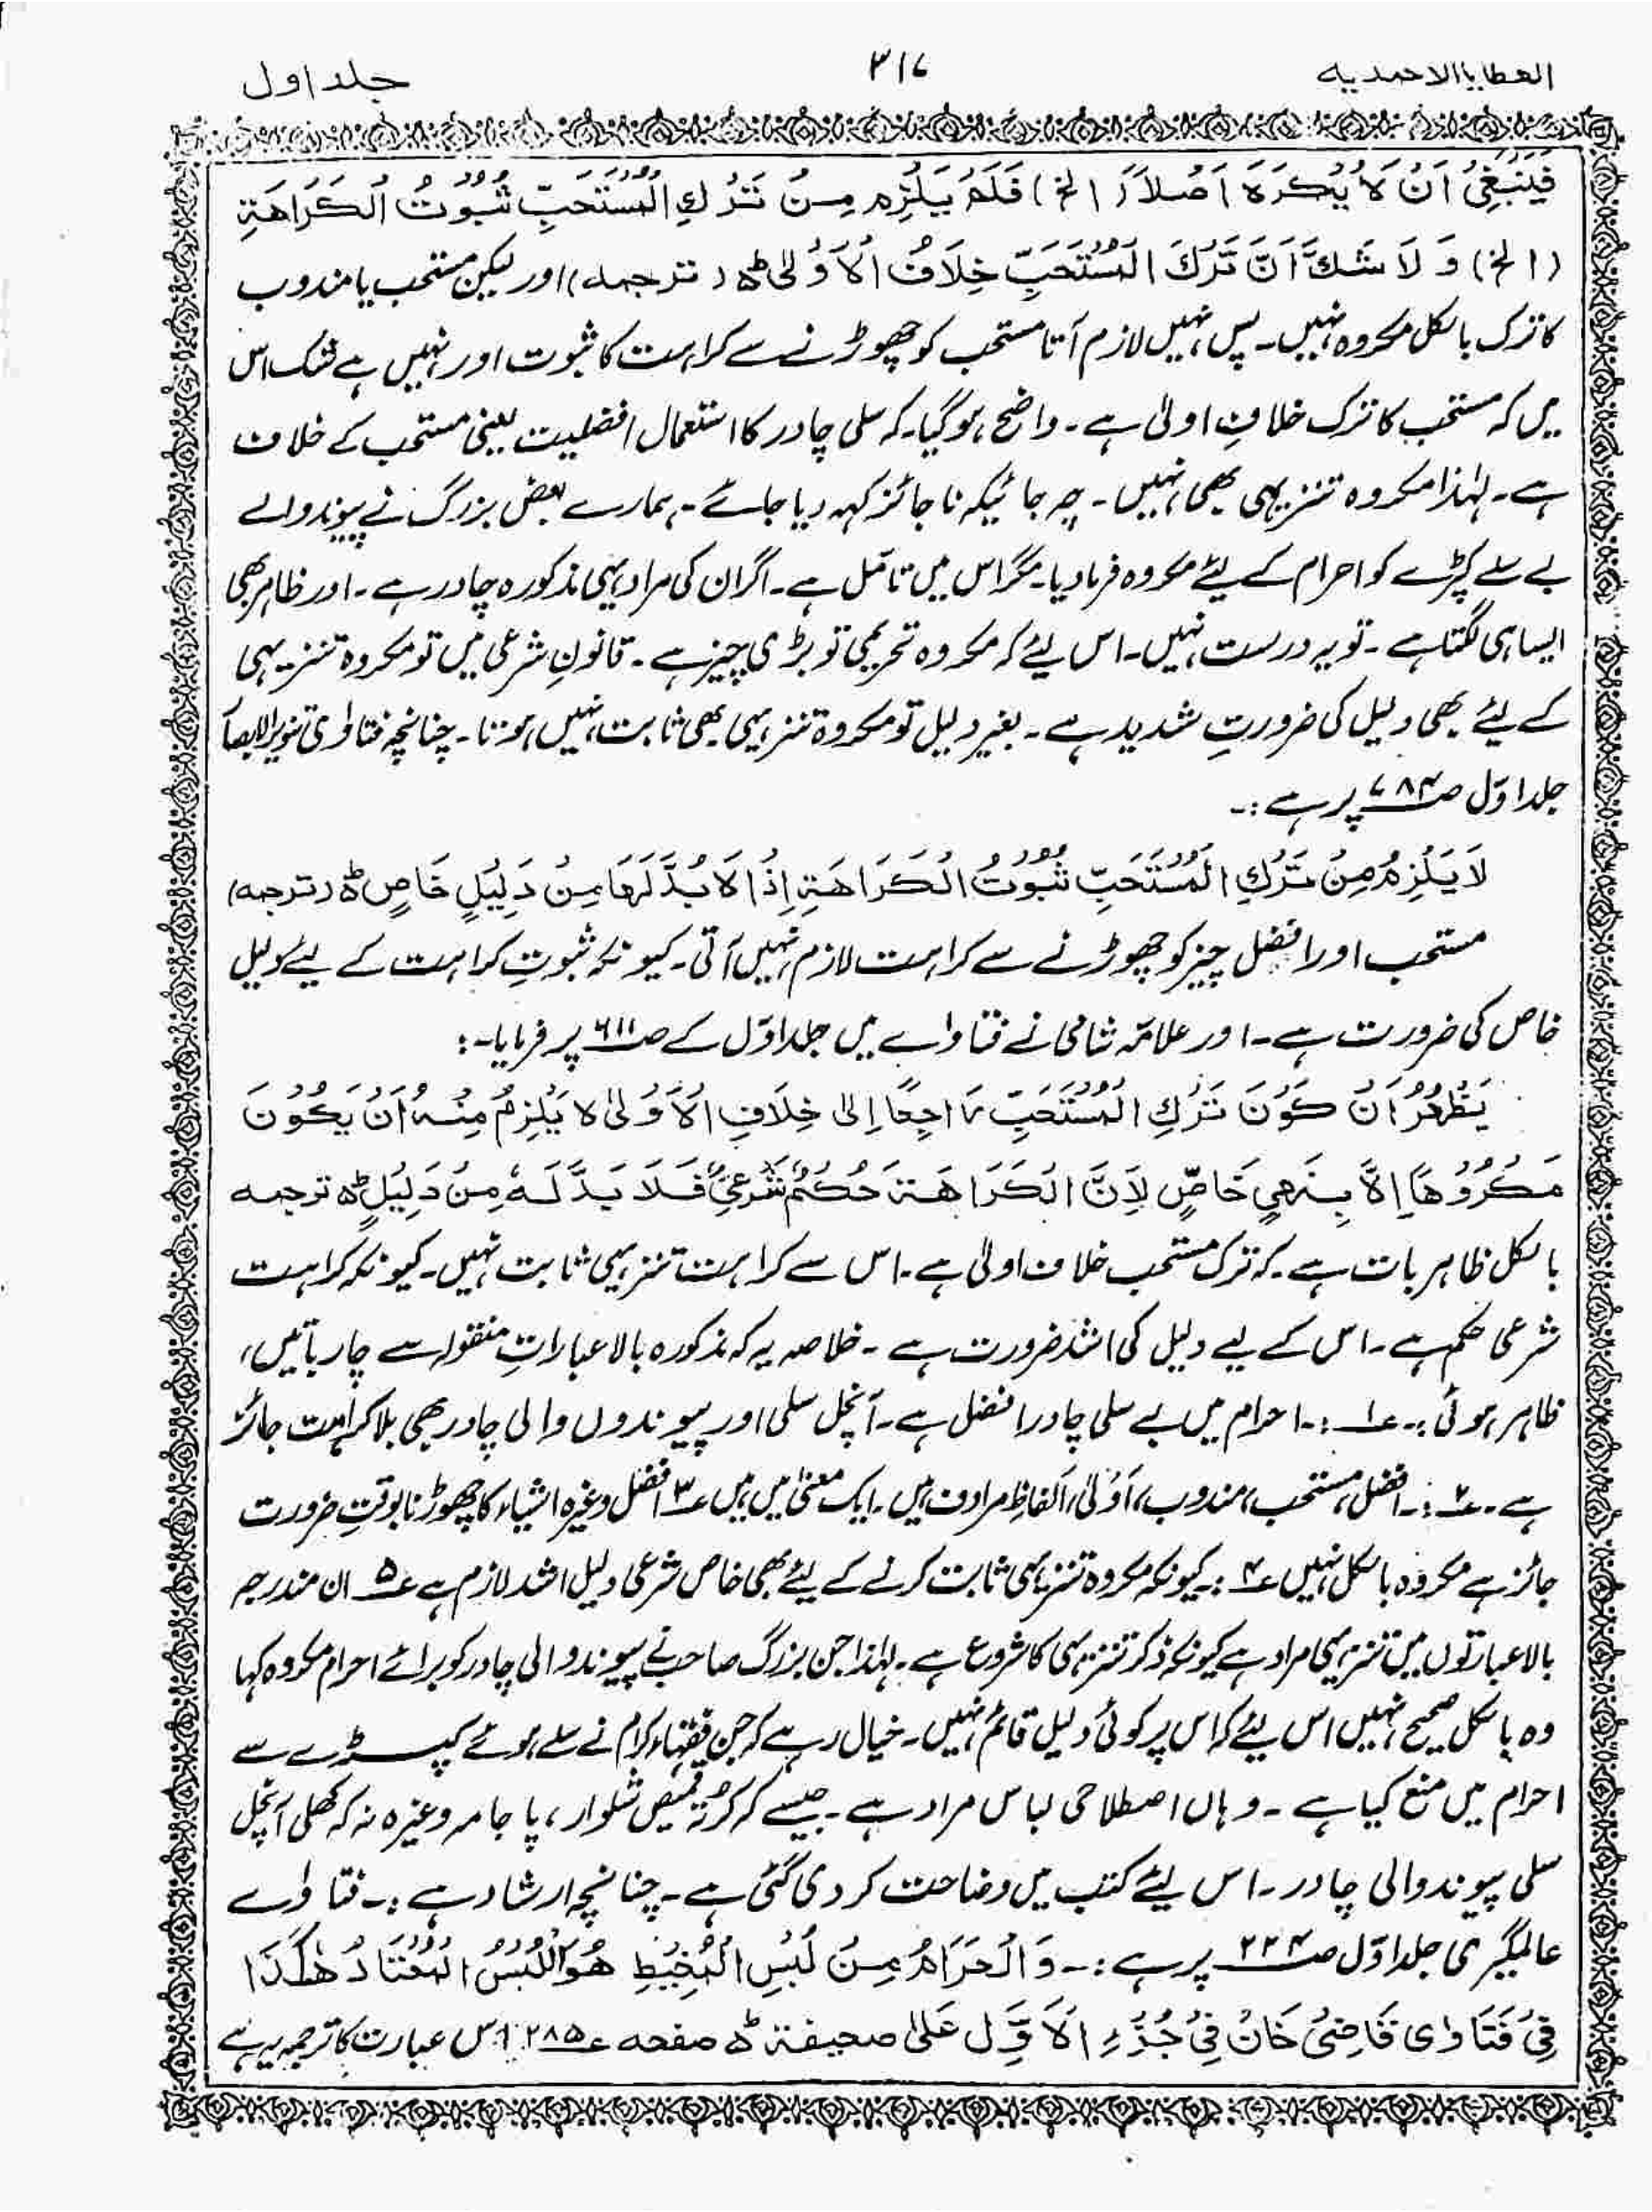 العطایا الاحمدیہ
۳۱۷
جلد اول
فَیَنْبَغِیْ اَنْ لَا یُکْرَہَ اَصْلاً (الخ) فَلَمْ یَلْزِم مِنْ تَرْكِ الْمُسْتَحَبِّ ثُبُوْتُ الْکَرَاھَۃِ
(الخ) وَ لَا شَكَّ اَنَّ تَرْكَ الْمُسْتَحَبِّ خِلَافُ الْاَوْلٰی ط (ترجمہ) اور لیکن مستحب یا مندوب
کا ترک بالکل مکروہ نہیں۔ پس نہیں لازم آتا مستحب کو چھوڑنے سے کراہت کا ثبوت اور نہیں ہے شک اس
میں کہ مستحب کا ترک خلافِ اولیٰ ہے۔ واضح ہو گیا۔ کہ سلی چادر کا استعمال افضلیت یعنی مستحب کے خلاف
ہے۔ لہٰذا مکروہ تنزیہی بھی نہیں۔ چہ جائیکہ نا جائز کہہ دیا جائے۔ ہمارے بعض بزرگ نے پیوند والے
بے سلے کپڑے کو احرام کے لیئے مکروہ فرما دیا۔ مگر اس میں تامّل ہے۔ اگر ان کی مراد یہی مذکورہ چادر ہے۔ اور ظاہر بھی
ایسا ہی لگتا ہے۔ تو یہ درست نہیں۔ اس لیئے کہ مکروہ تحریمی تو بڑی چیز ہے۔ قانونِ شرعی میں تو مکروہ تنزیہی
کے لیئے بھی دلیل کی ضرورتِ شدید ہے۔ بغیر دلیل تو مکروہ تنزیہی بھی ثابت نہیں ہوتا۔ چنانچہ فتاوٰی تنویر الابصار
جلد اوّل صـ۷۸۴ پر ہے :۔
لَا یَلْزِمُ مِنْ تَرْكِ الْمُسْتَحَبِّ ثُبُوْتُ الْکَرَاھَۃِ اِذْ لَا بُدَّ لَھَا مِنْ دَلِیْلٍ خَاصٍ ط (ترجمہ)
مستحب اور افضل چیز کو چھوڑنے سے کراہت لازم نہیں آتی۔ کیونکہ ثبوتِ کراہت کے لیے دلیل
خاص کی ضرورت ہے۔ اور علامّہ شامی نے فتاواے میں جلد اوّل کے صـ۶۱۱ پر فرمایا۔:
یَظْھَرُ اَنَّ کَوْنَ تَرْكِ الْمُسْتَحَبِّ رَاجِعًا اِلٰی خِلَافِ الْاَوْلٰی لَا یَلْزِمُ مِنْہُ اَنْ یَکُوْنَ
مَکْرُوْھًا اِلَّا بِنَھِیٍ خَاصٍّ لِاَنَّ الْکَرَاھَۃَ حُکْمٌ شَرْعِیٌّ فَلَا بَدَّ لَہٗ مِنْ دَلِیْلٍ ط ترجمہ
بالکل ظاہر بات ہے۔ کہ ترک مستحب خلاف اولیٰ ہے۔ اس سے کراہت تنزیہی ثابت نہیں۔ کیونکہ کراہت
شرعی حکم ہے۔ اس کے لیے دلیل کی اشد ضرورت ہے۔ خلاصہ یہ کہ مذکورہ بالا عباراتِ منقولہ سے چار باتیں،
ظاہر ہوئی :۔ ع۱ :۔ احرام میں بے سلی چادر افضل ہے۔ آنچل سلی اور پیوندوں والی چادر بھی بلا کراہت جائز
ہے۔ ع۲ :۔ افضل، مستحب، مندوب، اَوْلٰی، اَلفاظِ مرادف ہیں۔ ایک معنیٰ میں ہیں ع۳ افضل وغیرہ اشیاء کا چھوڑنا بوقتِ ضرورت
جائز ہے مکروہ بالکل نہیں ع۴ :۔ کیونکہ مکروہ تنزیہی ثابت کرنے کے لیئے بھی خاص شرعی دلیل اشد لازم ہے ع۵ ان مندرجہ
بالا عبارتوں میں تنزیہی مراد ہے کیونکہ ذکر تنزیہی کا شروع ہے۔ لہٰذا جن بزرگ صاحب نے پیوند والی چادر کو برائے احرام مکروہ کہا
وہ بالکل صحیح نہیں اس لیئے کہ اس پر کوئی دلیل قائم نہیں۔ خیال رہے کہ جن فقہاءِ کرام نے سلے ہوئے کپڑے سے
احرام میں منع کیا ہے۔ وہاں اصطلاحی لباس مراد ہے۔ جیسے کہ کُرتہ قمیص شلوار، پا جامہ وغیرہ نہ کہ کھلی آنچل
سلی پیوند والی چادر۔ اس لیئے کتب میں وضاحت کر دی گئی ہے۔ چنانچہ ارشاد ہے :۔ فتاواے
عالمگیری جلد اوّل صـ۲۲۴ پر ہے :۔ وَالْحَرَامُ مِنْ لُبْسِ الْمَخِیْطِ ھُوَ اللُّبْسُ الْمُعْتَادُ ھٰکَذَا
فِیْ فَتَاوٰی قَاضِیْ خَانْ فِیْ جُزْءِ الْاَوَّلِ عَلٰی صحیفۃ ط صفحہ ع۲۸۵ اس عبارت کا ترجمہ یہ ہے